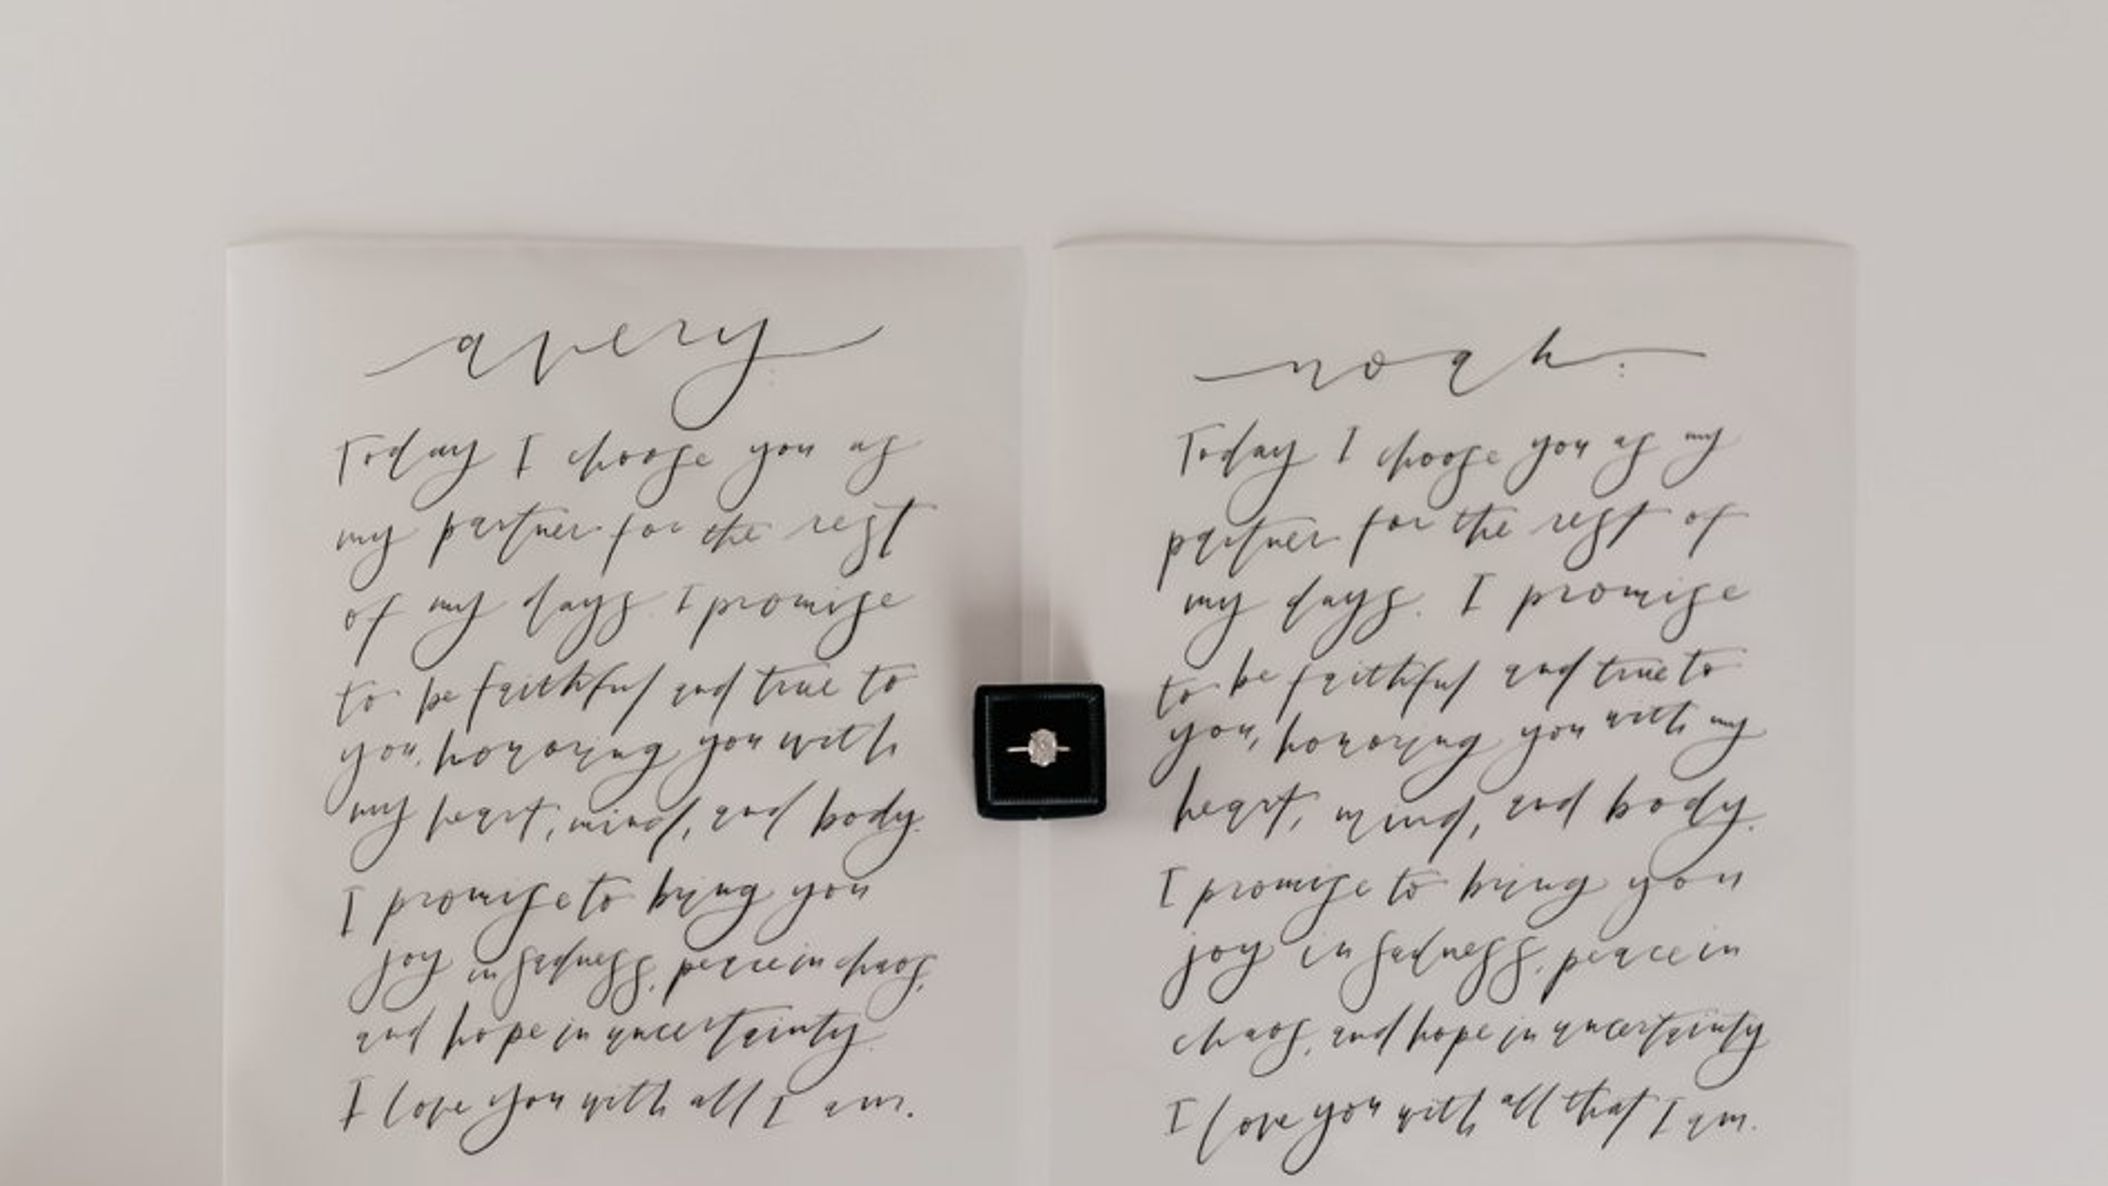 avery:
Today I choose you as
my partner for the rest
of my days. I promise
to be faithful and true to
you, honoring you with
my heart, mind, and body.
I promise to bring you
joy in sadness, peace in chaos,
and hope in uncertainty.
I love you with all I am.
noah:
Today I choose you as my
partner for the rest of
my days. I promise
to be faithful and true to
you, honoring you with my
heart, mind, and body.
I promise to bring you
joy in sadness, peace in
chaos, and hope in uncertainty
I love you with all that I am.